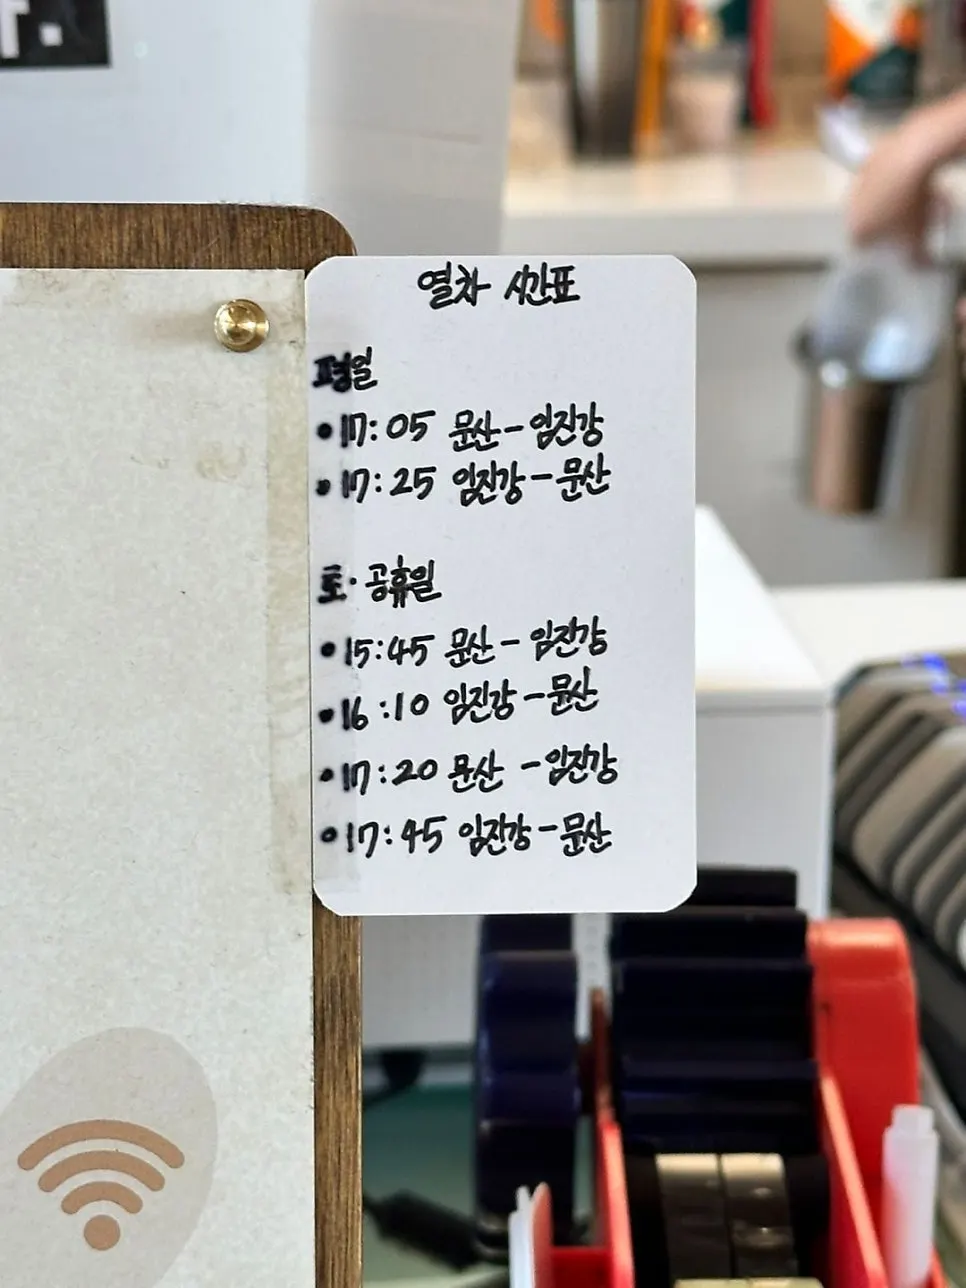 열차 시간표
평일
• 17:05 문산-임진강
• 17:25 임진강-문산
토·공휴일
• 15:45 문산-임진강
• 16:10 임진강-문산
• 17:20 문산-임진강
• 17:45 임진강-문산